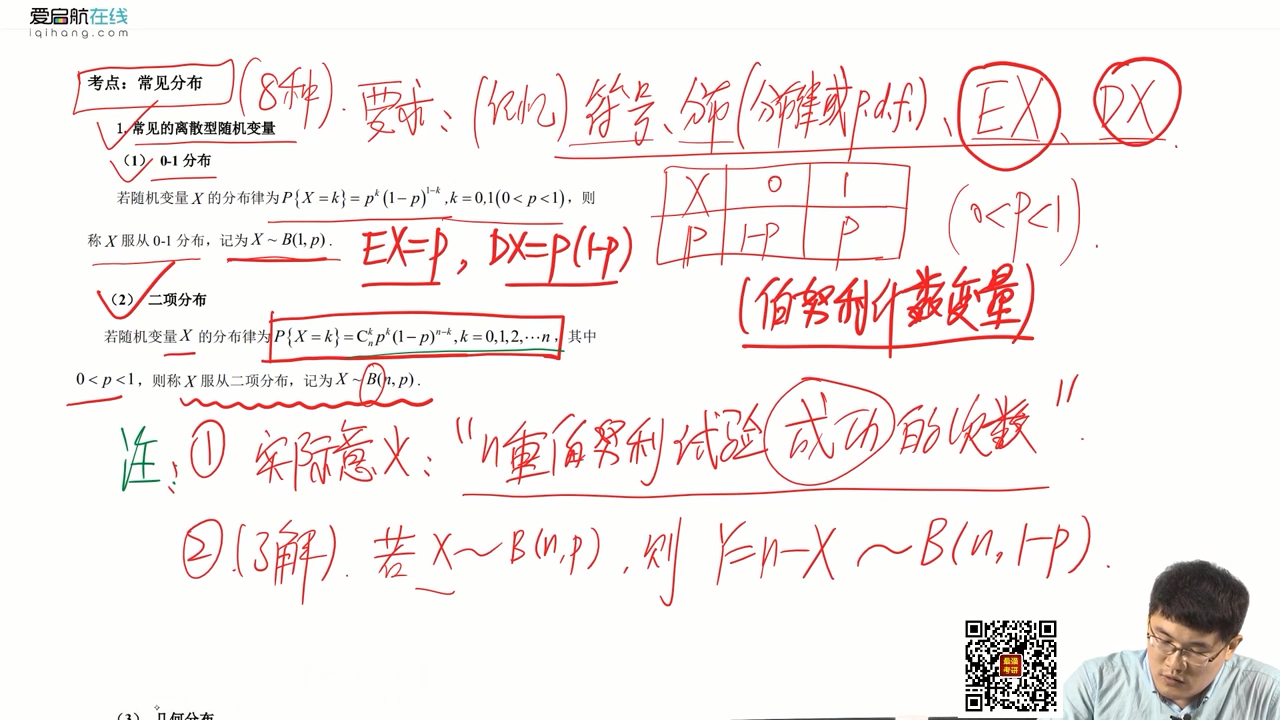 爱启航在线
iqihang.com
考点：常见分布 (8种). 要求：(记忆) 符号、分布(分布律或p.d.f.)、EX、DX.
1. 常见的离散型随机变量
（1） 0-1 分布
若随机变量 X 的分布律为 P{X = k} = p^k (1 − p)^{1−k}, k = 0,1 (0 < p < 1)，则
X 0 1
P 1-p p
(0<p<1).
称 X 服从 0-1 分布，记为 X ~ B(1, p).
EX=p, DX=p(1-p)
(伯努利计数变量)
（2） 二项分布
若随机变量 X 的分布律为 P{X = k} = C_n^k p^k (1 − p)^{n−k}, k = 0,1,2,⋯n，其中
0 < p < 1，则称 X 服从二项分布，记为 X ~ B(n, p).
注：① 实际意义：“n重伯努利试验成功的次数”.
②(了解). 若 X~B(n,p), 则 Y=n-X ~B(n,1-p).
最强
考研
（3） 几何分布